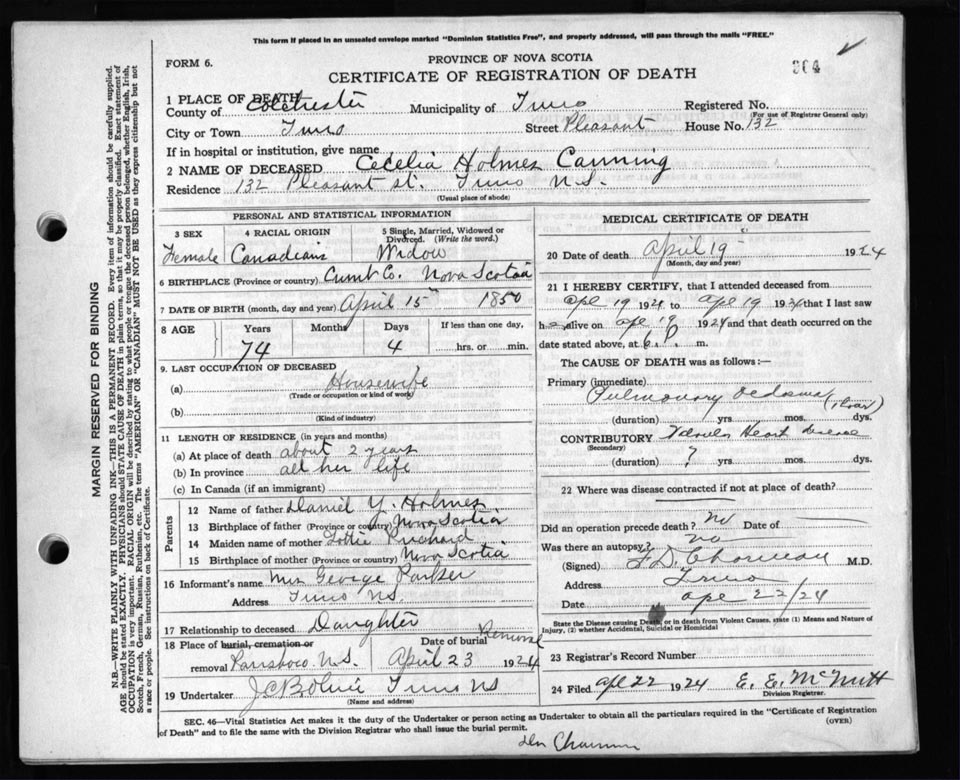 This form if placed in an unsealed envelope marked "Dominion Statistics Free", and properly addressed, will pass through the mails "FREE."
FORM 6.
PROVINCE OF NOVA SCOTIA
CERTIFICATE OF REGISTRATION OF DEATH
364
1 PLACE OF DEATH
County of Colchester Municipality of Truro Registered No.
(For use of Registrar General only)
City or Town Truro Street Pleasant House No. 132
If in hospital or institution, give name
2 NAME OF DECEASED Cecelia Holmes Canning
Residence 132 Pleasant St. Truro N.S.
(Usual place of abode)
PERSONAL AND STATISTICAL INFORMATION
3 SEX 4 RACIAL ORIGIN 5 Single, Married, Widowed or Divorced. (Write the word.)
Female Canadian Widow
6 BIRTHPLACE (Province or country) Cumb Co. Nova Scotia
7 DATE OF BIRTH (month, day and year) April 15th 1850
8 AGE Years Months Days If less than one day,
74 4 hrs. or min.
9. LAST OCCUPATION OF DECEASED
(a) Housewife
(Trade or occupation or kind of work)
(b)
(Kind of industry)
11 LENGTH OF RESIDENCE (in years and months)
(a) At place of death about 2 years
(b) In province all her life
(c) In Canada (if an immigrant)
Parents
12 Name of father Daniel Y. Holmes
13 Birthplace of father (Province or country) Nova Scotia
14 Maiden name of mother Lottie Prichard
15 Birthplace of mother (Province or country) Nova Scotia
16 Informant's name Mrs George Parker
Address Truro N.S.
17 Relationship to deceased Daughter
18 Place of burial, cremation or removal Parrsboro N.S. Date of burial Removal April 23 1924
19 Undertaker Truro NS
(Name and address)
MEDICAL CERTIFICATE OF DEATH
20 Date of death April 19 1924
(Month, day and year)
21 I HEREBY CERTIFY, that I attended deceased from
Apr 19 1924 to Apr 19 1924 that I last saw
h alive on Apr 19 1924 and that death occurred on the
date stated above, at 6 P. m.
The CAUSE OF DEATH was as follows:—
Primary (immediate)
Pulmonary Oedema
(duration) yrs. mos. dys.
CONTRIBUTORY Heart Disease
(Secondary)
(duration) ? yrs. mos. dys.
22 Where was disease contracted if not at place of death?
Did an operation precede death? no Date of
Was there an autopsy? no
(Signed) M.D.
Address Truro
Date Apr 22/24
State the Disease causing Death, or in death from Violent Causes, state (1) Means and Nature of Injury, (2) whether Accidental, Suicidal or Homicidal
23 Registrar's Record Number
24 Filed Apr 22 1924 E. E. McNutt
Division Registrar.
SEC. 46—Vital Statistics Act makes it the duty of the Undertaker or person acting as Undertaker to obtain all the particulars required in the "Certificate of Registration
of Death" and to file the same with the Division Registrar who shall issue the burial permit.
(OVER)
MARGIN RESERVED FOR BINDING
N.B.—WRITE PLAINLY WITH UNFADING INK—THIS IS A PERMANENT RECORD. Every item of information should be carefully supplied.
AGE should be stated EXACTLY. PHYSICIANS should STATE CAUSE OF DEATH in plain terms, so that it may be properly classified. Exact statement of
OCCUPATION is very important. RACIAL ORIGIN will be described by stating to what people or tongue the deceased person belonged, whether English, Irish,
Scotch, French, German, Russian, Ruthenian, etc. The terms "AMERICAN" OR "CANADIAN" MUST NOT BE USED as they express citizenship but not
a race or people. See instructions on back of Certificate.